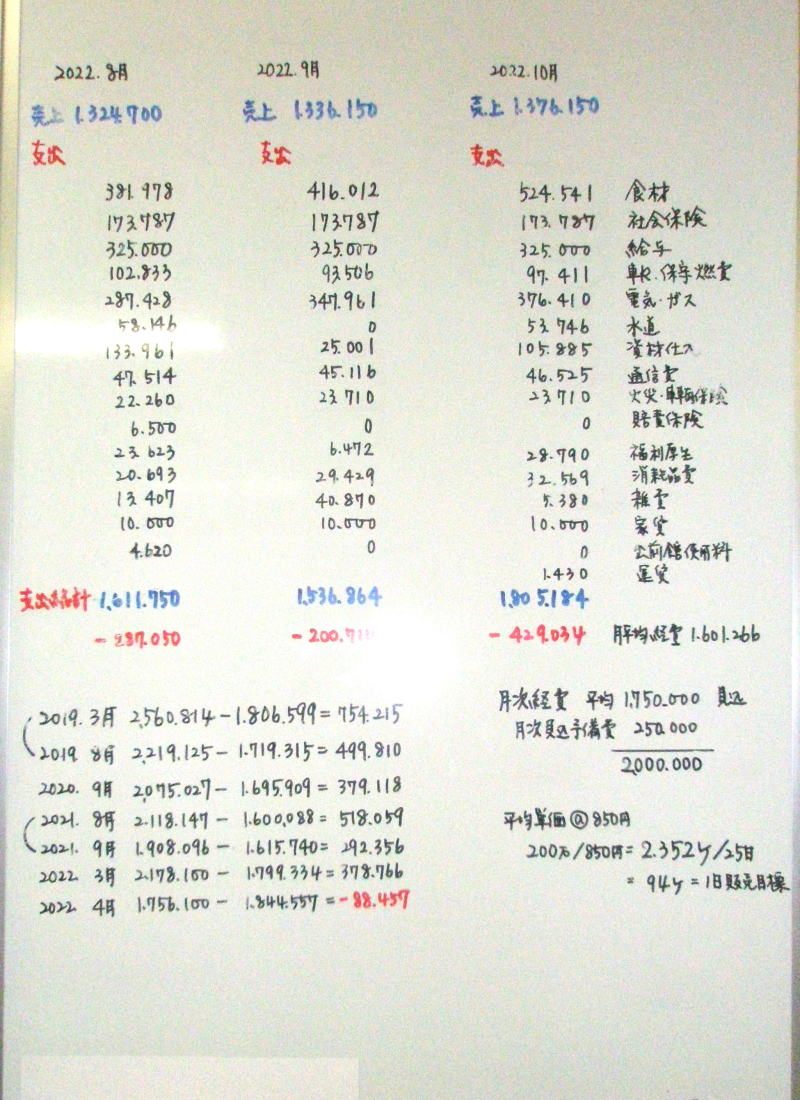 2022.8月 2022.9月 2022.10月
売上 1.324.700 売上 1.336.150 売上 1.376.150
支出 支出 支出
381.978 416.012 524.541 食材
173.787 173.787 173.787 社会保険
325.000 325.000 325.000 給与
102.833 93.506 97.411 燃費
287.428 347.961 376.410 電気・ガス
58.146 0 53.746 水道
133.961 25.001 105.885 資材仕入
47.514 45.116 46.525 通信費
22.260 23.710 23.710 火災・車輌保険
6.500 0 0 賠責保険
23.623 6.472 28.790 福利厚生
20.693 29.429 32.569 消耗品費
13.407 40.870 5.380 雑費
10.000 10.000 10.000 家賃
4.620 0 0 使用料
1.430 運賃
支出合計 1,611.750 1,536.864 1.805.184
-287.050 -200.71 -429.034 月平均経費 1.601.266
2019.3月 2,560.814-1.806.599=754.215
2019 8月 2,219.125-1.719.315=499.810
2020.9月 2,075.027-1.695.909=379.118
2021.8月 2.118.147-1.600,088=518.059
2021.9月 1,908.096-1.615.740=292.356
2022 3月 2.178.100-1.799.334=378.766
2022 4月 1.756.100-1.844.557=-88.457
月次経費 平均 1.750.000 見込
月次見込予備費 250.000
2,000.000
平均単価@850円
200万/850円=2.352ケ/25日
=94ケ=1日販売目標